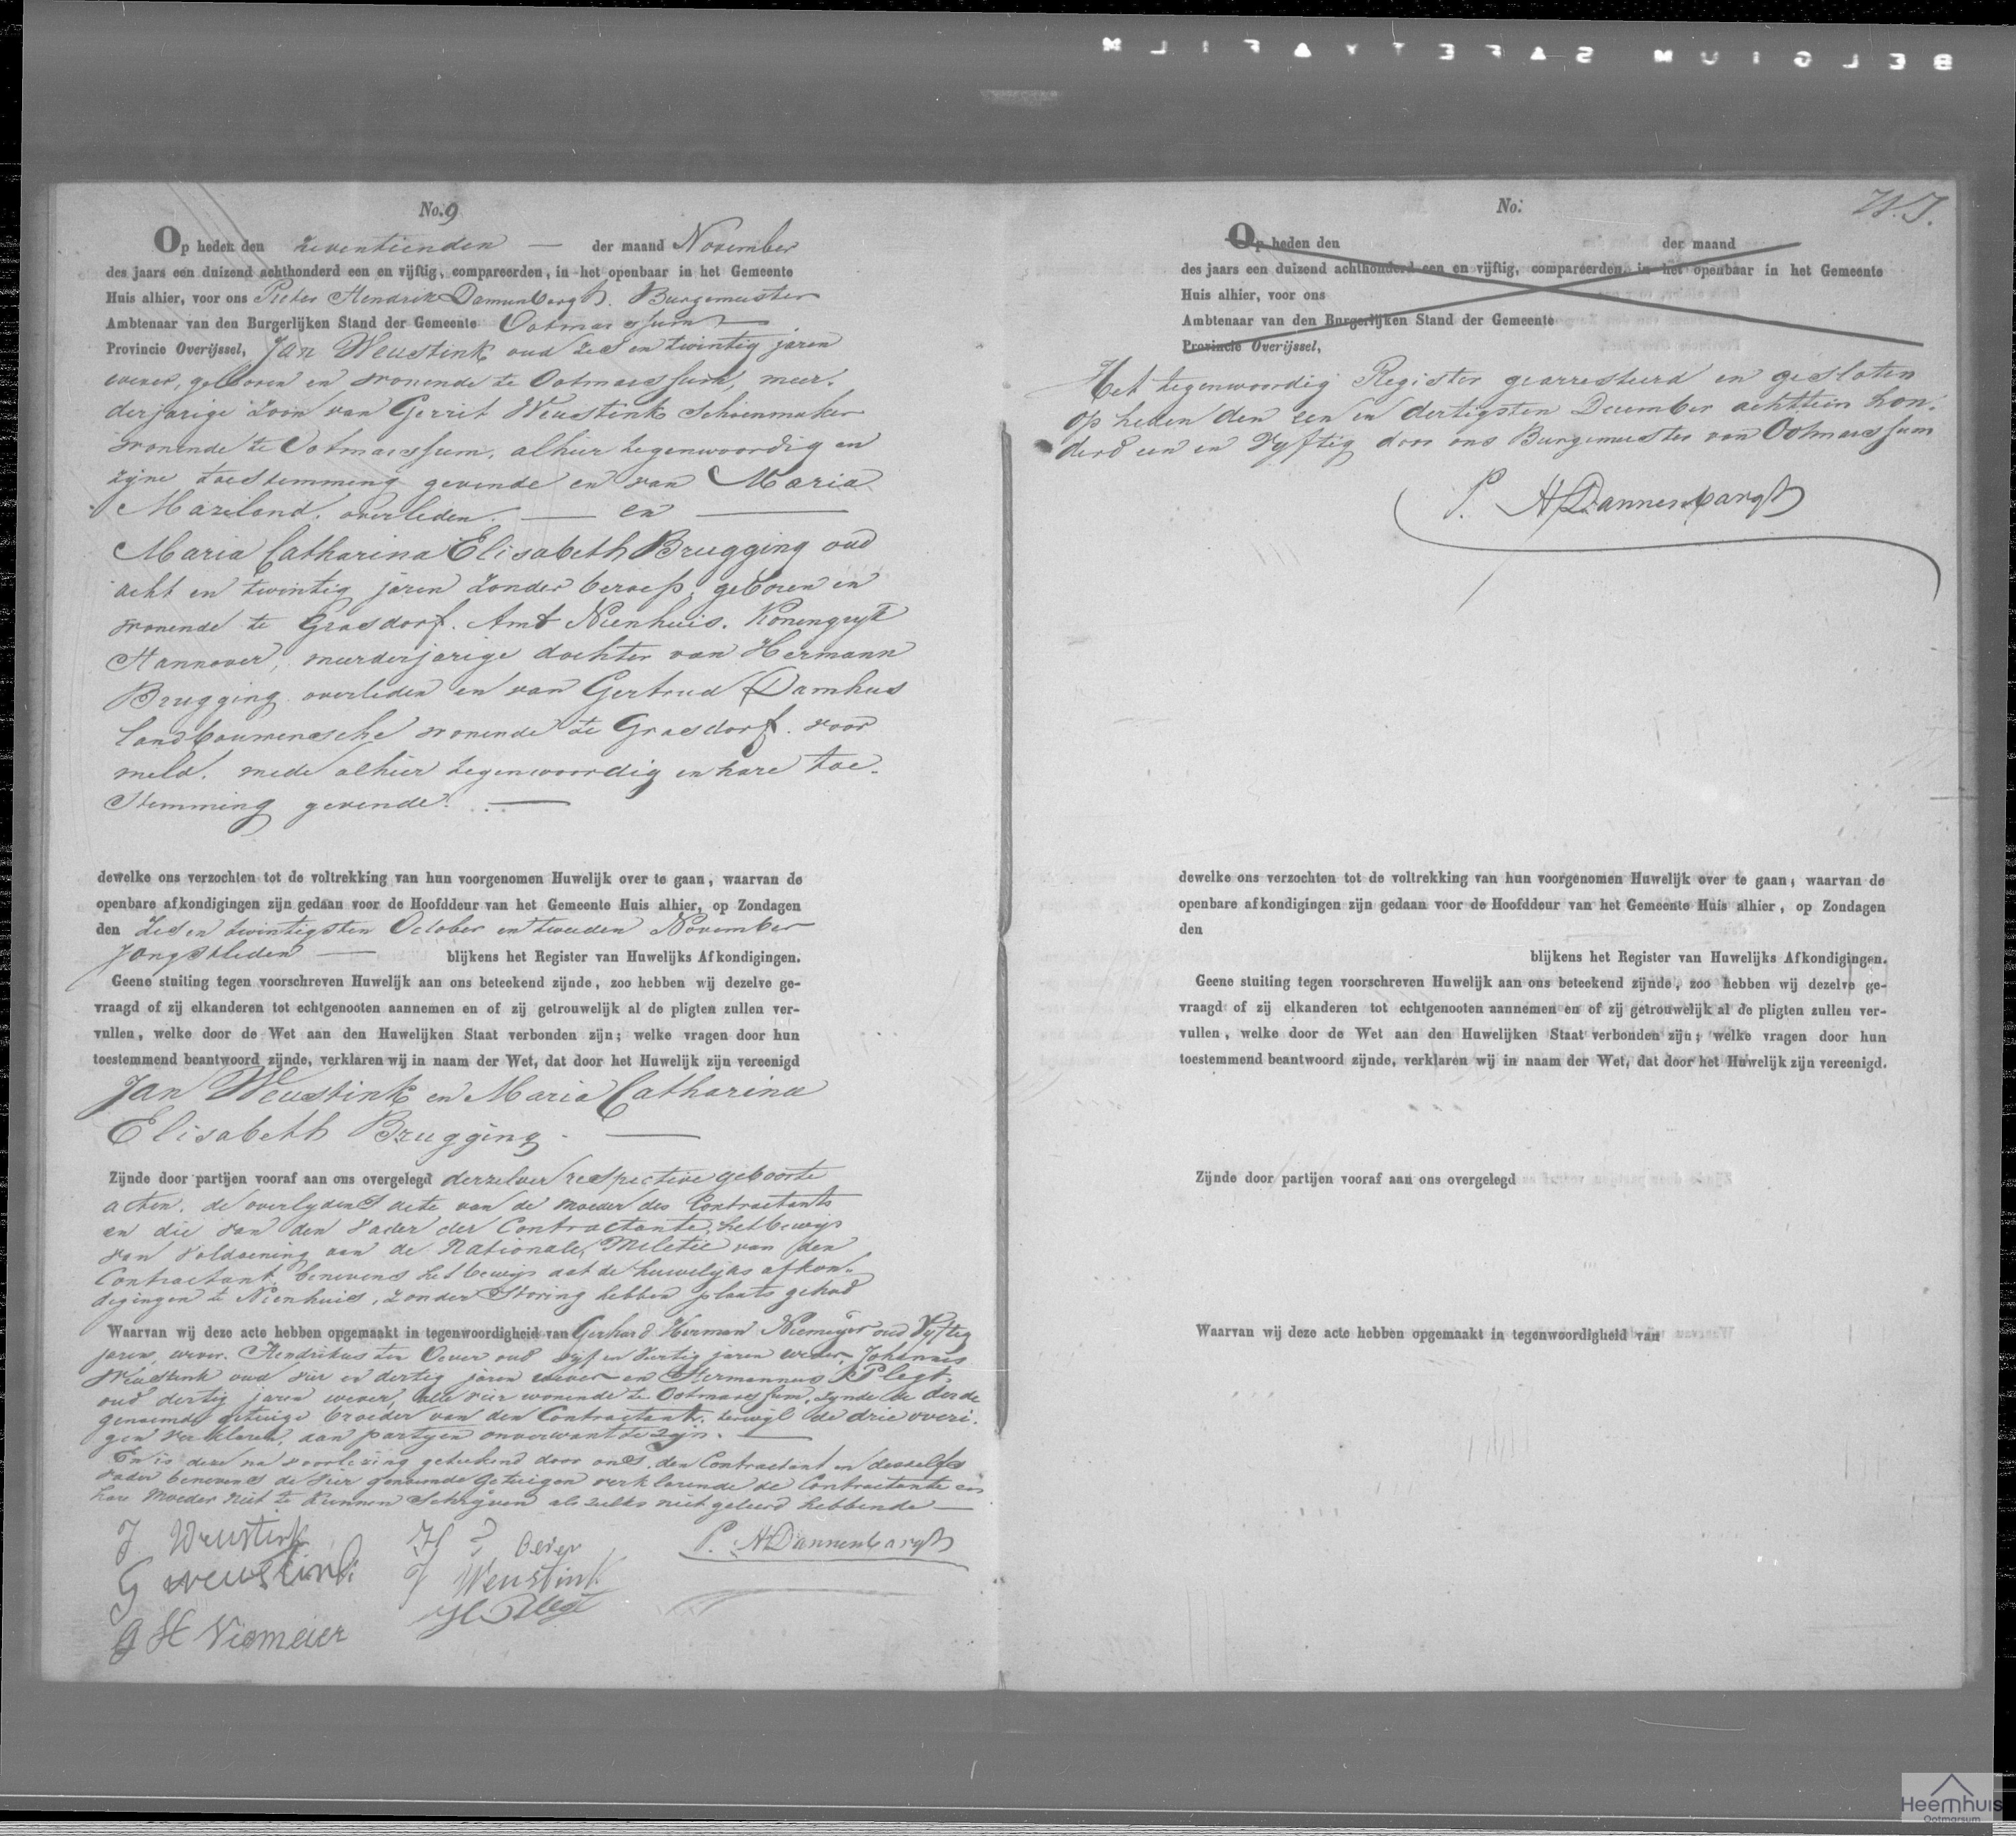 BELGIUM SAFETY FILM
No. 9
Op heden den zeventienden — der maand November
des jaars een duizend achthonderd een en vijftig, compareerden, in het openbaar in het Gemeente
Huis alhier, voor ons Pieter Hendrik Dannenbargh. Burgemeester
Ambtenaar van den Burgerlijken Stand der Gemeente Ootmarssum
Provincie Overijssel, Jan Weustink oud zes en twintig jaren
wever, geboren en wonende te Ootmarssum, meer-
derjarige zoon van Gerrit Weustink Schoenmaker
wonende te Ootmarssum, alhier tegenwoordig en
zijne toestemming gevende en van Maria
Mariland, overleden. — en —
Maria Catharina Elisabeth Brugging oud
acht en twintig jaren zonder beroep, geboren en
wonende te Grasdorf. Amt Nienhuis. Koningryk
Hannover, meerderjarige dochter van Hermann
Brugging overleden en van Gertrud Damhus
landbouwersche wonende te Grasdorf. voor
meld. mede alhier tegenwoordig en hare toe-
stemming gevende. —
dewelke ons verzochten tot de voltrekking van hun voorgenomen Huwelijk over te gaan, waarvan de
openbare afkondigingen zijn gedaan voor de Hoofddeur van het Gemeente Huis alhier, op Zondagen
den zes en twintigsten October en tweeden November
Jongstleden — blijkens het Register van Huwelijks Afkondigingen.
Geene stuiting tegen voorschreven Huwelijk aan ons beteekend zijnde, zoo hebben wij dezelve ge-
vraagd of zij elkanderen tot echtgenooten aannemen en of zij getrouwelijk al de pligten zullen ver-
vullen, welke door de Wet aan den Huwelijken Staat verbonden zijn; welke vragen door hun
toestemmend beantwoord zijnde, verklaren wij in naam der Wet, dat door het Huwelijk zijn vereenigd
Jan Weustink en Maria Catharina
Elisabeth Brugging. —
Zijnde door partijen vooraf aan ons overgelegd derzelver respective geboorte
acten, de overlydens acte van de moeder des Contractants
en die van den vader der Contractante, het bewijs
van voldoening aan de Nationale Militie van den
Contractant, benevens het bewijs dat de huwelyks afkon-
digingen te Nienhuis, zonder storing hebben plaats gehad
Waarvan wij deze acte hebben opgemaakt in tegenwoordigheid van Gerhard Herman Niemeijer oud Vyftig
jaren, wever. Hendrikus ten Oever oud vijf en veertig jaren wever, Johannes
Weustink oud vier en dertig jaren wever en Hermannus Plegt.
oud dertig jaren wever, alle vier wonende te Ootmarssum, zynde de derde
genoemde getuige broeder van den Contractant. terwyl de drie overi-
gen verklaren, aan partyen onverwant te zijn. —
En is deze na voorlezing geteekend door ons, den Contractant en deszelfs
vader benevens de vier genoemde getuigen verklarende de Contractante en
hare moeder niet te kunnen schrijven als zulks niet geleerd hebbende —
J Weustink
G weustink
G H Niemeier
H T Oever
J Weustink
H Plegt
P. H Dannenbargh
No.
Op heden den der maand
des jaars een duizend achthonderd een en vijftig, compareerden, in het openbaar in het Gemeente
Huis alhier, voor ons
Ambtenaar van den Burgerlijken Stand der Gemeente
Provincie Overijssel,
Het tegenwoordig Register gearresteerd en gesloten
op heden den een en dertigsten December achttien hon-
derd een en Vyftig door ons Burgemeester van Ootmarssum
P. H Dannenbargh
dewelke ons verzochten tot de voltrekking van hun voorgenomen Huwelijk over te gaan, waarvan de
openbare afkondigingen zijn gedaan voor de Hoofddeur van het Gemeente Huis alhier, op Zondagen
den
blijkens het Register van Huwelijks Afkondigingen.
Geene stuiting tegen voorschreven Huwelijk aan ons beteekend zijnde, zoo hebben wij dezelve ge-
vraagd of zij elkanderen tot echtgenooten aannemen en of zij getrouwelijk al de pligten zullen ver-
vullen, welke door de Wet aan den Huwelijken Staat verbonden zijn; welke vragen door hun
toestemmend beantwoord zijnde, verklaren wij in naam der Wet, dat door het Huwelijk zijn vereenigd.
Zijnde door partijen vooraf aan ons overgelegd
Waarvan wij deze acte hebben opgemaakt in tegenwoordigheid van
Heemhuis
Ootmarsum